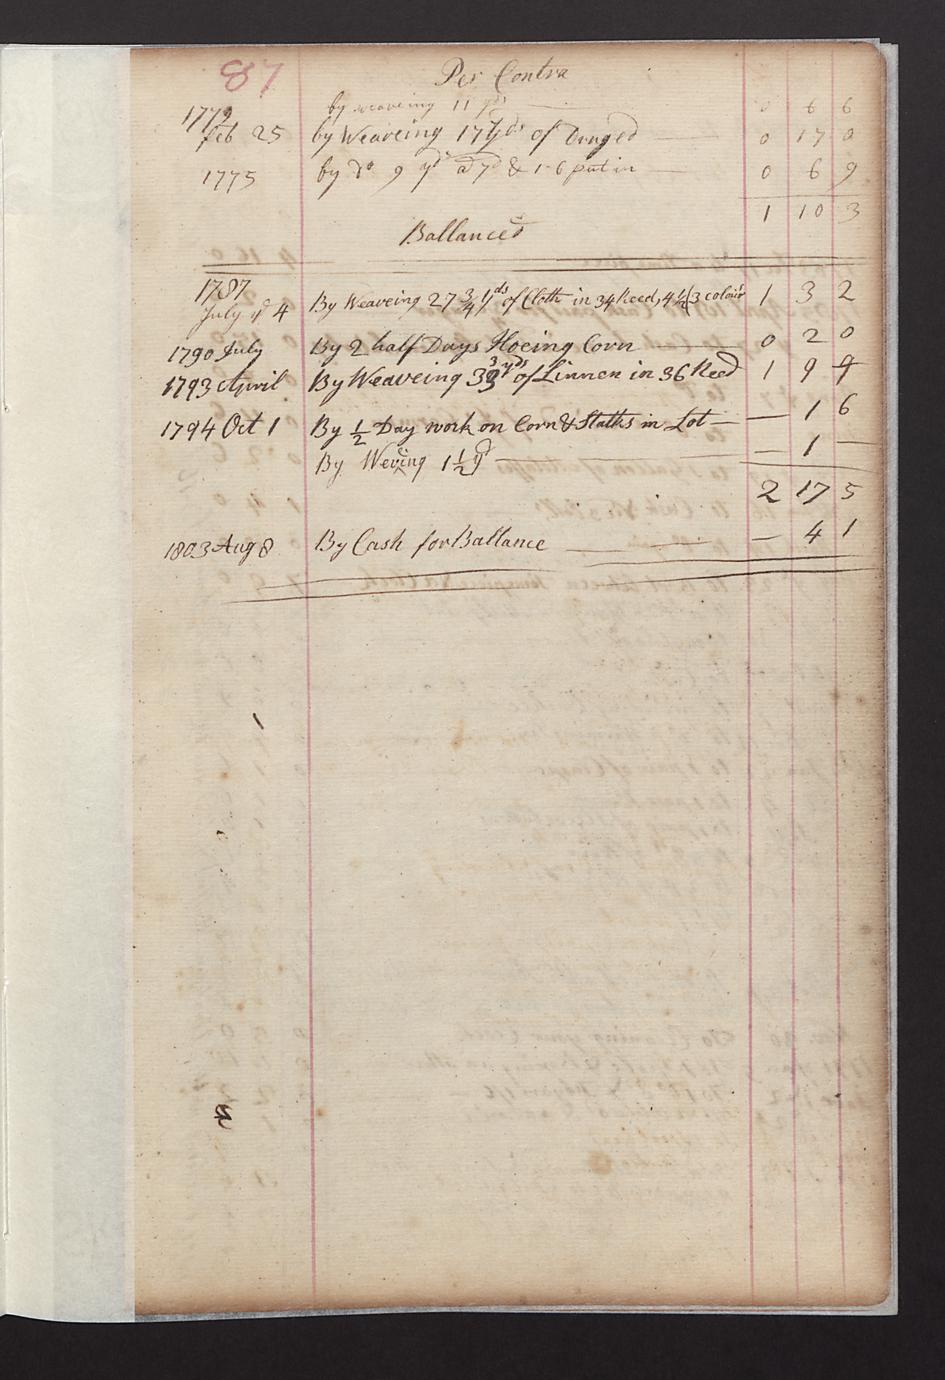 87 Per Contra
1772 by weaveing 11 yds 0 6 6
Feb 25 by Weaveing 17 yds of 0 17 0
1775 by do 9 yds a 7d & 1-6 put in 0 6 9
1 10 3
Ballanced
1787
July ye 4 By Weaveing 27 3/4 yds of Cloth in 34 Reed, 4 1/4 3 colour 1 3 2
1790 July By 2 half Days Hoeing Corn 0 2 0
1793 April By Weaveing 33 yds of Linnen in 36 Reed 1 9 9
1794 Oct 1 By 1/2 Day work on Corn & Stalks in Lot — — 1 6
By Weveing 1 1/2 yd — 1 —
2 17 5
1803 Aug 8 By Cash for Ballance — 4 1